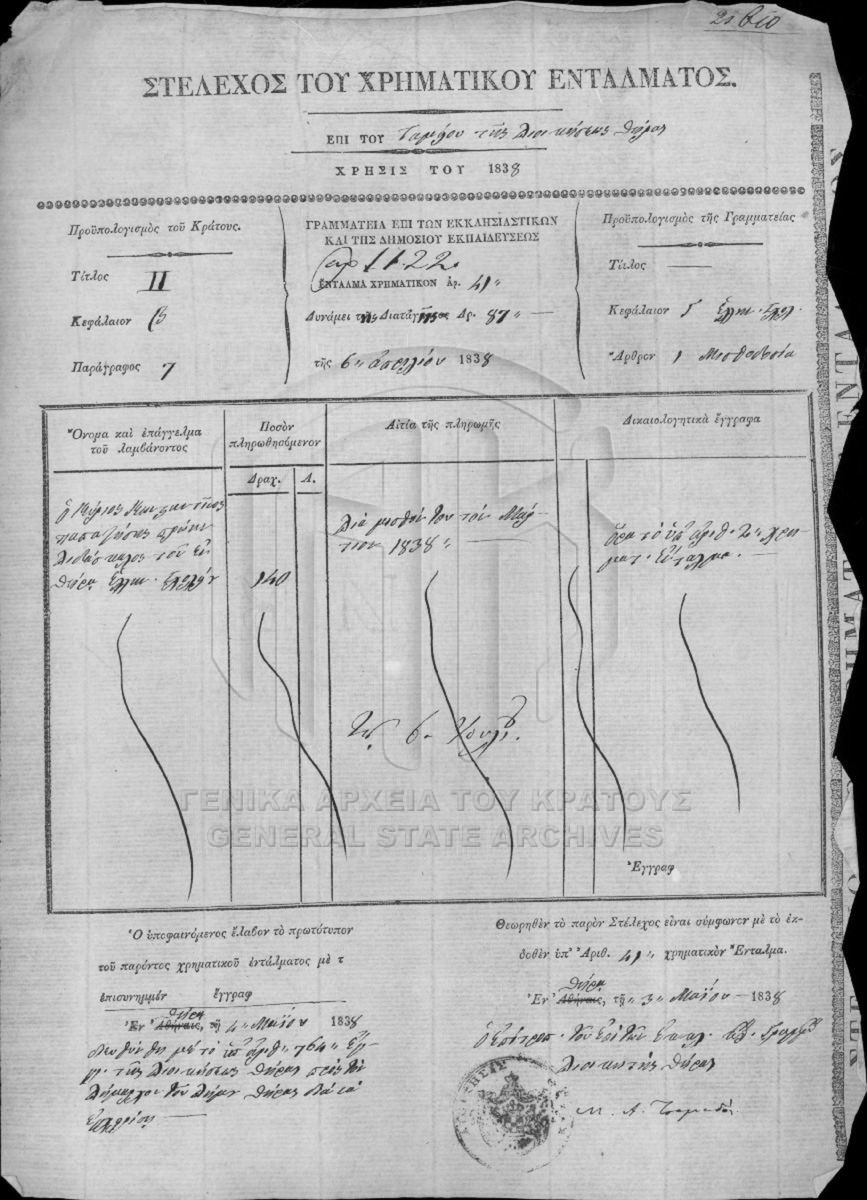 ΣΤΕΛΕΧΟΣ ΤΟΥ ΧΡΗΜΑΤΙΚΟΥ ΕΝΤΑΛΜΑΤΟΣ.
ΕΠΙ ΤΟΥ Ταμείου τῆς Διοικήσεως Θήρας
ΧΡΗΣΙΣ ΤΟΥ 1838
Προϋπολογισμὸς τοῦ Κράτους.
Τίτλος II
Κεφάλαιον β
Παράγραφος 7
ΓΡΑΜΜΑΤΕΙΑ ΕΠΙ ΤΩΝ ΕΚΚΛΗΣΙΑΣΤΙΚΩΝ
ΚΑΙ ΤΗΣ ΔΗΜΟΣΙΟΥ ΕΚΠΑΙΔΕΥΣΕΩΣ
ἀρ 1122
ἜΝΤΑΛΜΑ ΧΡΗΜΑΤΙΚΟΝ ἀρ. 41 "
Δυνάμει τῆς Διαταγῆς Ἀρ. 87 "
τῆς 6 " Ἀπριλίου 1838
Προϋπολογισμὸς τῆς Γραμματείας
Τίτλος —
Κεφάλαιον 5 Ἑλλην. Σχολ.
Ἄρθρον 1 Μισθοδοσία
Ὄνομα καὶ ἐπάγγελμα
τοῦ λαμβάνοντος
Ποσὸν
πληρωθησόμενον
Δραχ. Λ.
Αἰτία τῆς πληρωμῆς
Δικαιολογητικὰ ἔγγραφα
ὁ Κύριος Κωνσταντῖνος
διδάσκαλος τοῦ ἐν
Θήρᾳ Ἑλλην. Σχολείου
140
Διὰ μισθόν του τοῦ Μαρ-
τίου 1838 "
ὅρα τὸ ὑπ' ἀριθ. 2 " χρη-
ματ. Ἔνταλμα.
6
ΓΕΝΙΚΑ ΑΡΧΕΙΑ ΤΟΥ ΚΡΑΤΟΥΣ
GENERAL STATE ARCHIVES
Ἔγγραφ
Ὁ ὑποφαινόμενος ἔλαβον τὸ πρωτότυπον
τοῦ παρόντος χρηματικοῦ ἐντάλματος μὲ τ
ἐπισυνημμέν ἔγγραφ
Θήρᾳ
Ἐν Ἀθήναις, τῇ 4 " Μαΐου 1838
διευθύνθη μὲ τὸ ὑπ' ἀριθ. 764 "
τῆς Διοικήσεως Θήρας πρὸς τὸν
Δήμαρχον τοῦ Δήμου Θήρας
Θεωρηθὲν τὸ παρὸν Στέλεχος εἶναι σύμφωνον μὲ τὸ ἐκ-
δοθὲν ὑπ' Ἀριθ. 41 " χρηματικὸν Ἔνταλμα.
Θήρᾳ
Ἐν Ἀθήναις, τῇ 3 " Μαΐου — 1838
Διοικητὴς Θήρας